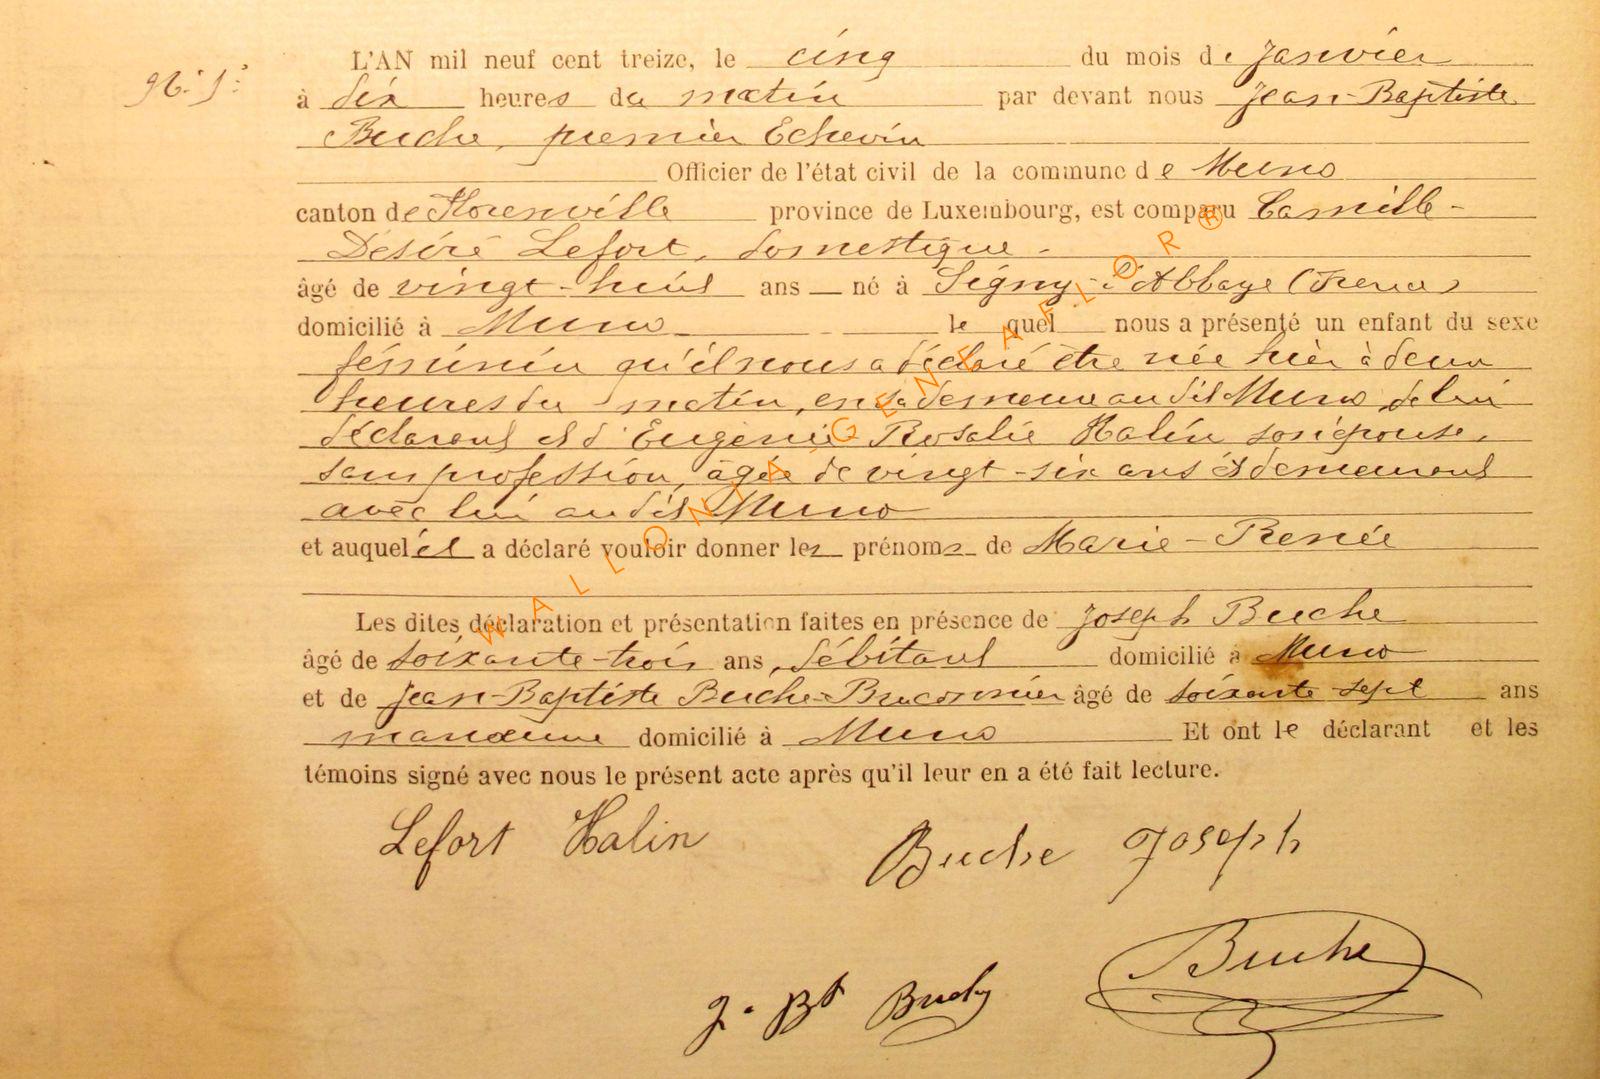 N° 1.
L'AN mil neuf cent treize, le cinq du mois de Janvier
à dix heures du matin par devant nous Jean-Baptiste
Buche, premier Echevin
Officier de l'état civil de la commune de Muno
canton de Florenville province de Luxembourg, est comparu Camille-
Désiré Lefort, domestique.
âgé de vingt-huit ans né à Signy-l'Abbaye (France)
domicilié à Muno lequel nous a présenté un enfant du sexe
féminin qu'il nous a déclaré être née hier à deux
heures du matin, en sa demeure au dit Muno, de lui
déclarant et d'Eugénie Rosalie Halin son épouse,
sans profession, âgée de vingt-six ans et demeurant
avec lui au dit Muno
et auquel il a déclaré vouloir donner les prénoms de Marie-Renée
Les dites déclaration et présentation faites en présence de Joseph Buche
âgé de soixante-trois ans, débitant domicilié à Muno
et de Jean-Baptiste Buche-Braconnier âgé de soixante-sept ans
domicilié à Muno Et ont le déclarant et les
témoins signé avec nous le présent acte après qu'il leur en a été fait lecture.
Lefort Halin Buche Joseph
J. Bt Buche Buche
WALLONIA.GENEAFLOR®